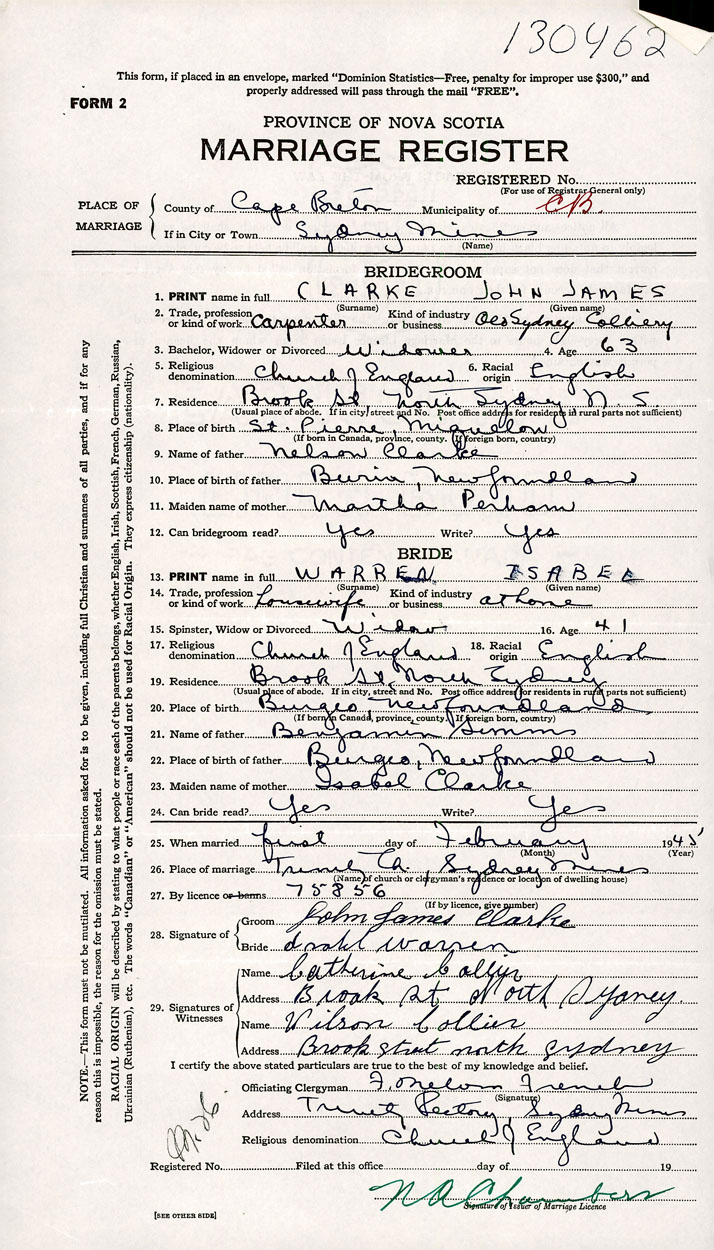 130462
This form, if placed in an envelope, marked "Dominion Statistics—Free, penalty for improper use $300," and
properly addressed will pass through the mail "FREE".
FORM 2
PROVINCE OF NOVA SCOTIA
MARRIAGE REGISTER
REGISTERED No.
(For use of Registrar General only)
PLACE OF MARRIAGE
County of Cape Breton Municipality of C.B.
If in City or Town Sydney Mines
(Name)
BRIDEGROOM
1. PRINT name in full CLARKE JOHN JAMES
(Surname) (Given name)
2. Trade, profession or kind of work Carpenter Kind of industry or business Old Sydney Colliery
3. Bachelor, Widower or Divorced Widower 4. Age 63
5. Religious denomination Church of England 6. Racial origin English
7. Residence Brook St, North Sydney N. S.
(Usual place of abode. If in city, street and No. Post office address for residents in rural parts not sufficient)
8. Place of birth St. Pierre, Miquelon
(If born in Canada, province, county. If foreign born, country)
9. Name of father Nelson Clarke
10. Place of birth of father Burin, Newfoundland
11. Maiden name of mother Martha Perham
12. Can bridegroom read? Yes Write? Yes
BRIDE
13. PRINT name in full WARREN ISABEL
(Surname) (Given name)
14. Trade, profession or kind of work housewife Kind of industry or business at home
15. Spinster, Widow or Divorced Widow 16. Age 41
17. Religious denomination Church of England 18. Racial origin English
19. Residence Brook St, North Sydney
(Usual place of abode. If in city, street and No. Post office address for residents in rural parts not sufficient)
20. Place of birth Burgeo, Newfoundland
(If born in Canada, province, county. If foreign born, country)
21. Name of father Benjamin Simms
22. Place of birth of father Burgeo, Newfoundland
23. Maiden name of mother Isabel Clarke
24. Can bride read? Yes Write? Yes
25. When married first day of February 1945
(Month) (Year)
26. Place of marriage Trinity Ch., Sydney Mines
(Name of church or clergyman's residence or location of dwelling house)
27. By licence or banns 75856
(If by licence, give number)
28. Signature of
Groom John James Clarke
Bride Warren
29. Signatures of Witnesses
Name Catherine Collier
Address Brook St North Sydney.
Name Wilson Collier
Address Brook street north Sydney
I certify the above stated particulars are true to the best of my knowledge and belief.
Officiating Clergyman F. Nelson French
(Signature)
Address Trinity Rectory, Sydney Mines
Religious denomination Church of England
Registered No. Filed at this office day of 19
N A Chambers
Signature of Issuer of Marriage Licence
[SEE OTHER SIDE]
NOTE.—This form must not be mutilated. All information asked for is to be given, including full Christian and surnames of all parties, and if for any
reason this is impossible, the reason for the omission must be stated.
RACIAL ORIGIN will be described by stating to what people or race each of the parents belongs, whether English, Irish, Scottish, French, German, Russian,
Ukrainian (Ruthenian), etc. The words "Canadian" or "American" should not be used for Racial Origin. They express citizenship (nationality).